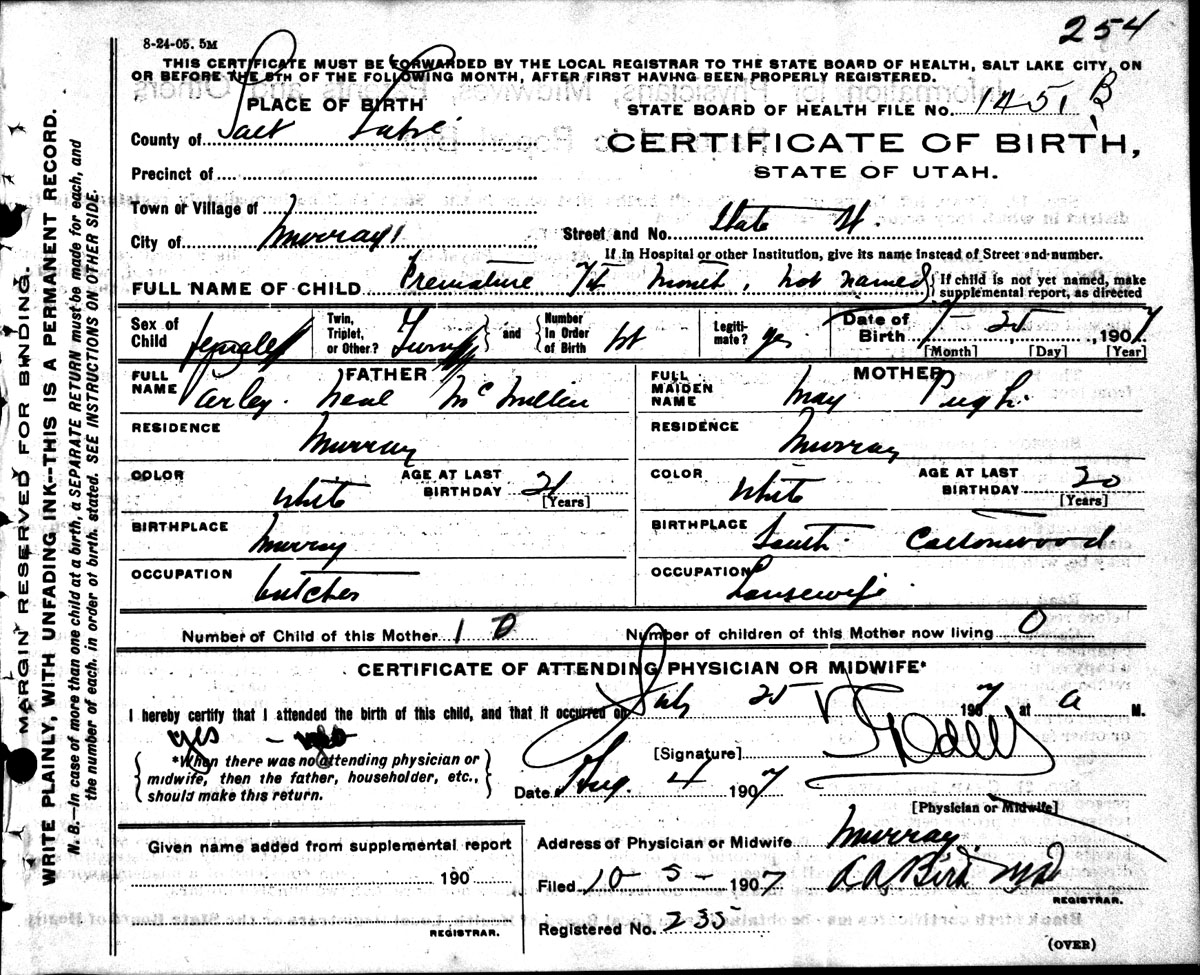 254
8-24-05. 5M
THIS CERTIFICATE MUST BE FORWARDED BY THE LOCAL REGISTRAR TO THE STATE BOARD OF HEALTH, SALT LAKE CITY, ON
OR BEFORE THE 5TH OF THE FOLLOWING MONTH, AFTER FIRST HAVING BEEN PROPERLY REGISTERED.
PLACE OF BIRTH
STATE BOARD OF HEALTH FILE No. 1451 B
County of Salt Lake
CERTIFICATE OF BIRTH,
Precinct of
STATE OF UTAH.
Town or Village of
City of Murray
Street and No. State St.
If in Hospital or other Institution, give its name instead of Street and number.
FULL NAME OF CHILD Premature 7th month, not named } If child is not yet named, make
supplemental report, as directed
Sex of Child female
Twin, Triplet, or Other? Twin } and { Number In Order of Birth 1st
Legitimate? yes
Date of Birth 7-25, 1907
[Month] [Day] [Year]
FATHER
FULL NAME Varley Neal McMillen
RESIDENCE Murray
COLOR White
AGE AT LAST BIRTHDAY 21
[Years]
BIRTHPLACE Murray
OCCUPATION butcher
MOTHER
FULL MAIDEN NAME May Pugh
RESIDENCE Murray
COLOR White
AGE AT LAST BIRTHDAY 20
[Years]
BIRTHPLACE South Cottonwood
OCCUPATION Housewife
Number of Child of this Mother 1 0
Number of children of this Mother now living 0
CERTIFICATE OF ATTENDING PHYSICIAN OR MIDWIFE*
I hereby certify that I attended the birth of this child, and that it occurred on July 25 1907 at a M.
yes
*When there was no attending physician or
midwife, then the father, householder, etc.,
should make this return.
[Signature]
Date Aug. 4 1907
[Physician or Midwife]
Given name added from supplemental report
190
REGISTRAR.
Address of Physician or Midwife Murray
Filed 10-5- 1907 A A Bird MD
REGISTRAR.
Registered No. 235
(OVER)
MARGIN RESERVED FOR BINDING.
WRITE PLAINLY, WITH UNFADING INK--THIS IS A PERMANENT RECORD.
N. B.—In case of more than one child at a birth, a SEPARATE RETURN must be made for each, and
the number of each, in order of birth, stated. SEE INSTRUCTIONS ON OTHER SIDE.